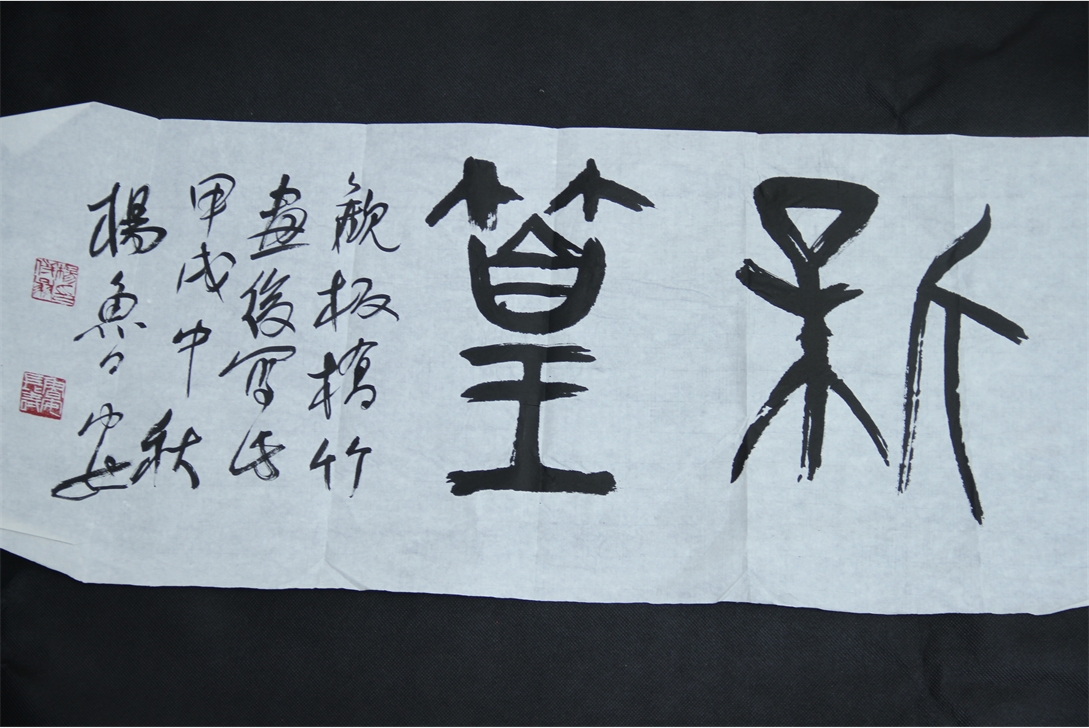 新篁
觀板橋竹
畫後寫此
甲戌中秋
楊魯安